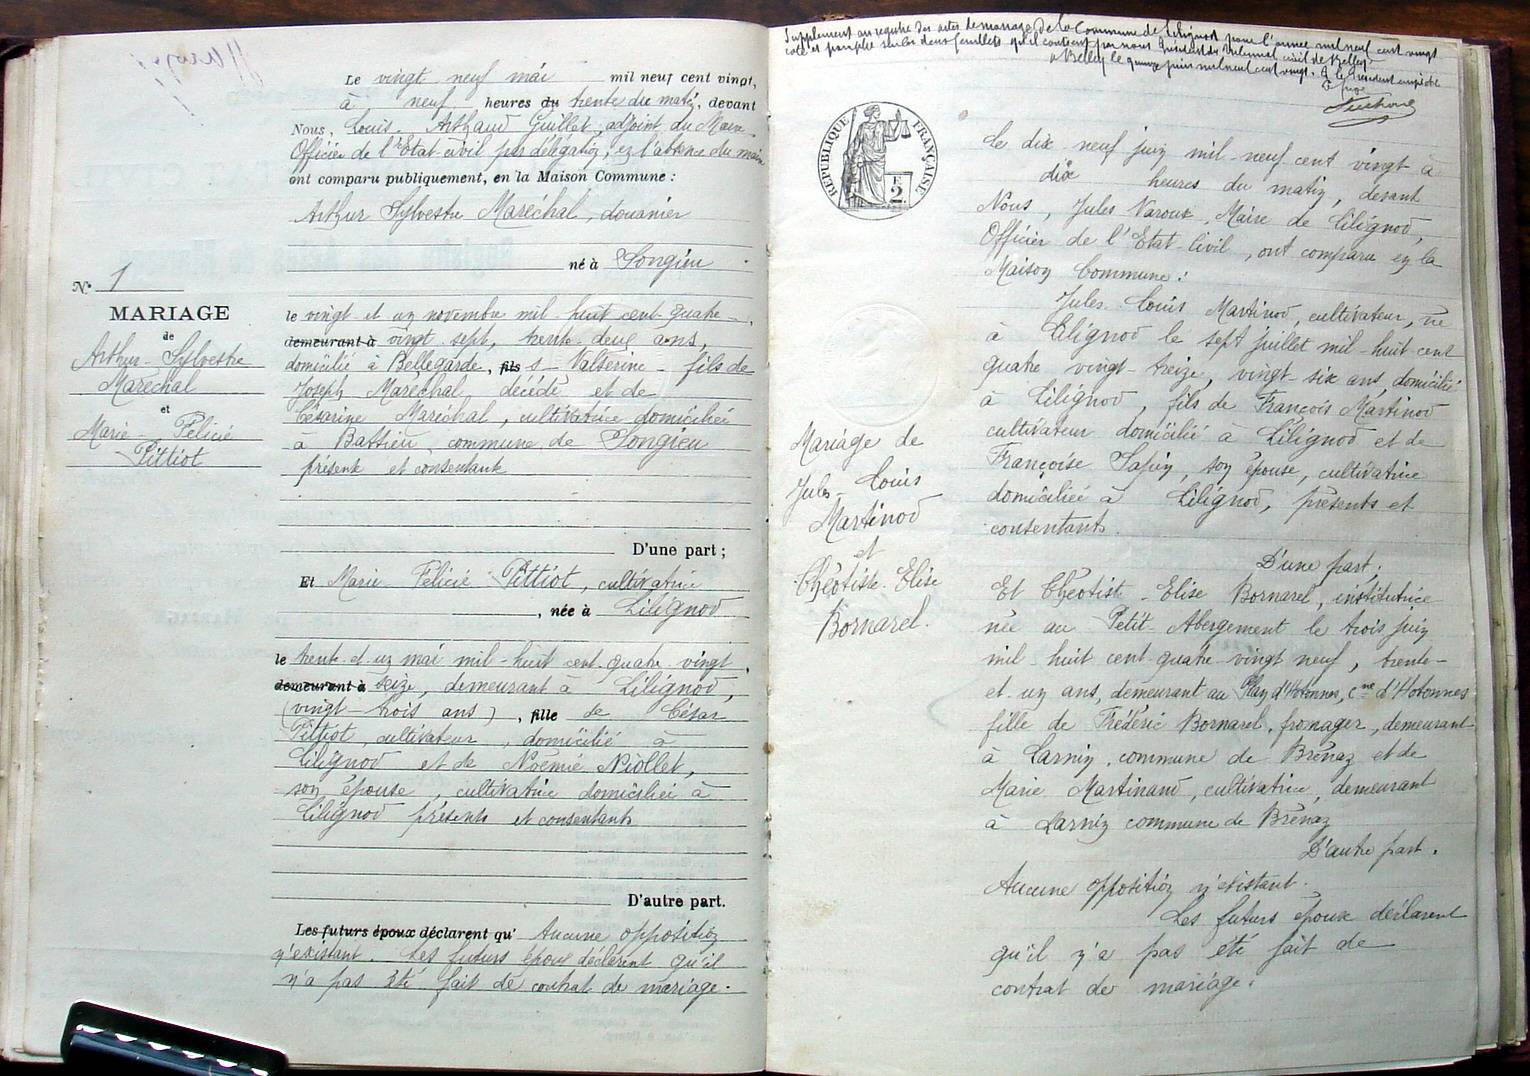 Le vingt neuf mai mil neuf cent vingt,
à neuf heures du trente du matin, devant
Nous, Louis Arthaud Guillet, adjoint du Maire
Officier de l'Etat civil par délégation, en l'absence du maire
ont comparu publiquement, en la Maison Commune :
Arthur Sylvestre Maréchal, douanier
né à Songieu
N° 1
MARIAGE
de
Arthur-Sylvestre
Maréchal
et
Marie-Félicie
Pittiot
le vingt et un novembre mil huit cent quatre-
demeurant à vingt-sept, trente-deux ans,
domicilié à Bellegarde, fils s-Valserine-fils de
Joseph Maréchal décédé et de
Césarine Maréchal, cultivatrice domiciliée
à Bassieu commune de Songieu
présente et consentante
D'une part ;
Et Marie Félicie Pittiot, cultivatrice
, née à Lilignod
le trente et un mai mil-huit cent quatre vingt
demeurant à seize, demeurant à Lilignod,
(vingt-trois ans), fille de César
Pittiot, cultivateur, domicilié à
Lilignod et de Noémie Niollet,
son épouse, cultivatrice domiciliée à
Lilignod présents et consentants
D'autre part.
Les futurs époux déclarent qu' Aucune opposition
n'existant. Les futurs époux déclarent qu'il
n'a pas été fait de contrat de mariage.
Supplément au registre des actes de mariage de la Commune de Lilignod pour l'année mil neuf cent vingt
coté et paraphé sur les deux feuillets qu'il contient par nous Président du tribunal civil de Belley
à Belley le quinze juin mil neuf cent vingt. P. le Président empêché
Le juge
RÉPUBLIQUE FRANÇAISE
F
2
Le dix-neuf juin mil neuf cent vingt à
dix heures du matin, devant
Nous, Jules Varoux, Maire de Lilignod,
Officier de l'Etat-Civil, ont comparu en la
Maison Commune :
Jules-Louis Martinod, cultivateur, né
à Lilignod le sept juillet mil-huit cent
quatre vingt-treize, vingt-six ans, domicilié
à Lilignod, fils de François Martinod
cultivateur domicilié à Lilignod et de
Françoise Sapin, son épouse, cultivatrice
domiciliée à Lilignod, présents et
consentants.
Mariage de
Jules-Louis
Martinod
et
Théotiste-Elise
Bornarel.
D'une part ;
Et Théotiste-Elise Bornarel, institutrice
née au Petit-Abergement le trois juin
mil huit cent quatre vingt neuf, trente-
et-un ans, demeurant au Plan d'Hotonnes, cne d'Hotonnes
fille de Frédéric Bornarel, fromager, demeurant
à Larnin, commune de Brénaz et de
Marie Martinand, cultivatrice, demeurant
à Larnin commune de Brénaz
D'autre part.
Aucune opposition n'existant.
Les futurs époux déclarent
qu'il n'a pas été fait de
contrat de mariage.